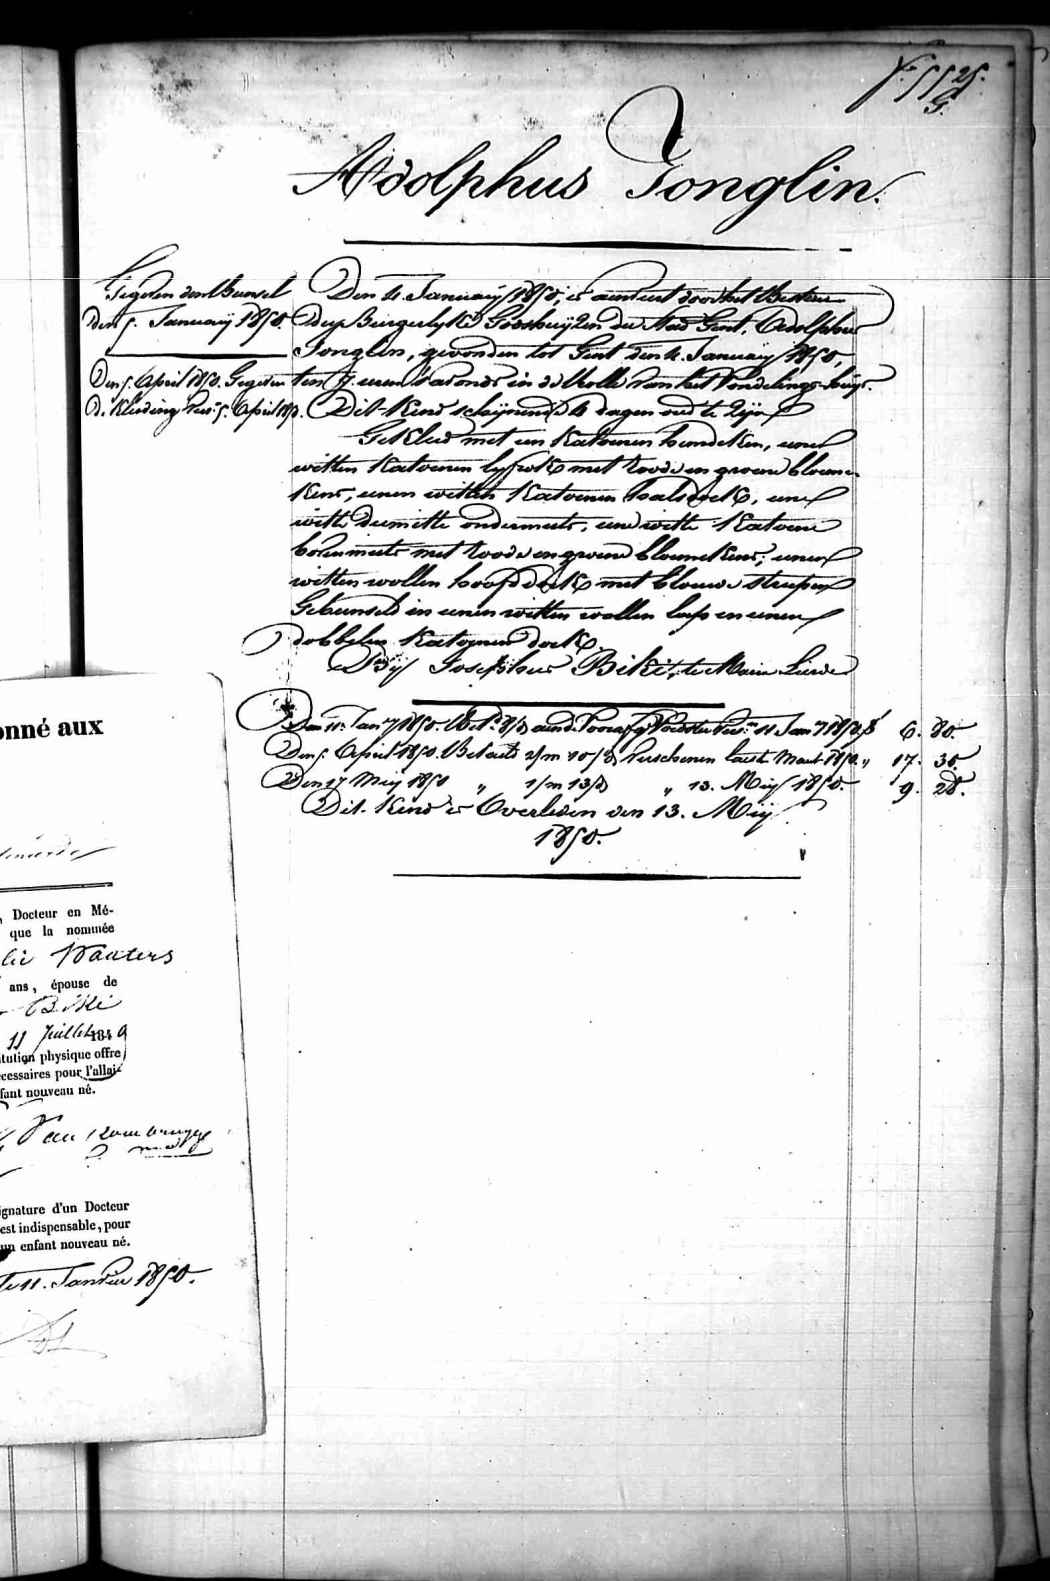 25.
G.
Adolphus Jonglin.
Gegeven den Bunsel
den 5. January 1850.
Den 5. April 1850. Gegeven
d. Kleeding Vers. 5. April 1850.
Den 4. January 1850, is aenveert door het Bestuer
der Burgerlyke Godshuyzen der Stad Gent, Adolphus
Jonglin, gevonden tot Gent den 4. January 1850,
ten 7 uren 's avonds in de Rolle van het Vondelings-huys.
Dit Kind schijnende 4 dagen oud te zijn
Gekleed met een Katoenen hemdeken, eenen
witten Katoenen lyfrok met roode en groene bloeme-
kens, eenen witten Katoenen halsdoek, eene
witte demitte ondermuts, eene witte Katoene
boven muts met roode en groene bloemekens; eenen
witten wollen hoofddoek met blauwe streepen
Gebunseld in eenen witten wollen lap en eenen
dobbelen Katoenen doek.
Bij Josephus Biké, te Maria Lierde
Den 11. Jany 1850. Bet. 8/d aende Voedster Vers. 11 Jany 1850 f 6. 80.
Den 5. April 1850. Betaeld 2/m 10/d Verschenen laest Maert 1850. " 17. 30.
Den 17 Mey 1850 " 1/m 13/d " 13. Mey 1850. 9. 28.
Dit Kind is Overleden den 13. Mey
1850.
onné aux
, Docteur en Mé-
que la nommée
lie Wauters
ans, épouse de
Biké
11 Juillet 1849
itution physique offre
écessaires pour l'allai-
fant nouveau né.
Van
ignature d'un Docteur
est indispensable, pour
un enfant nouveau né.
le 11. Janvier 1850.